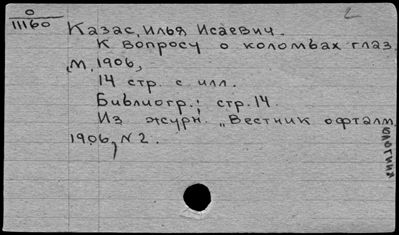 0
11160
2
Казас, Илья Исаевич.
К вопросу о коломбах глаз.
М, 1906,
14 стр. с илл.
Библиогр.: стр. 14.
Из журн. „Вестник офталм
ологии"
1906, N 2.